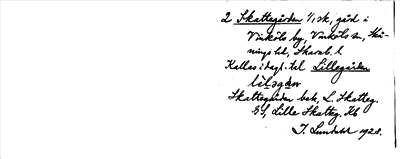 2 Skattegården 1/1 sk, gård i
Vinköls by, Vinköls sn, Skå-
nings hd, Skarab. l
Kallas i dagl. tal Lillegården
Skattegården bek, L. Skatteg.
GS, Lille Skatteg. Kb
J. Lundahl 1928.